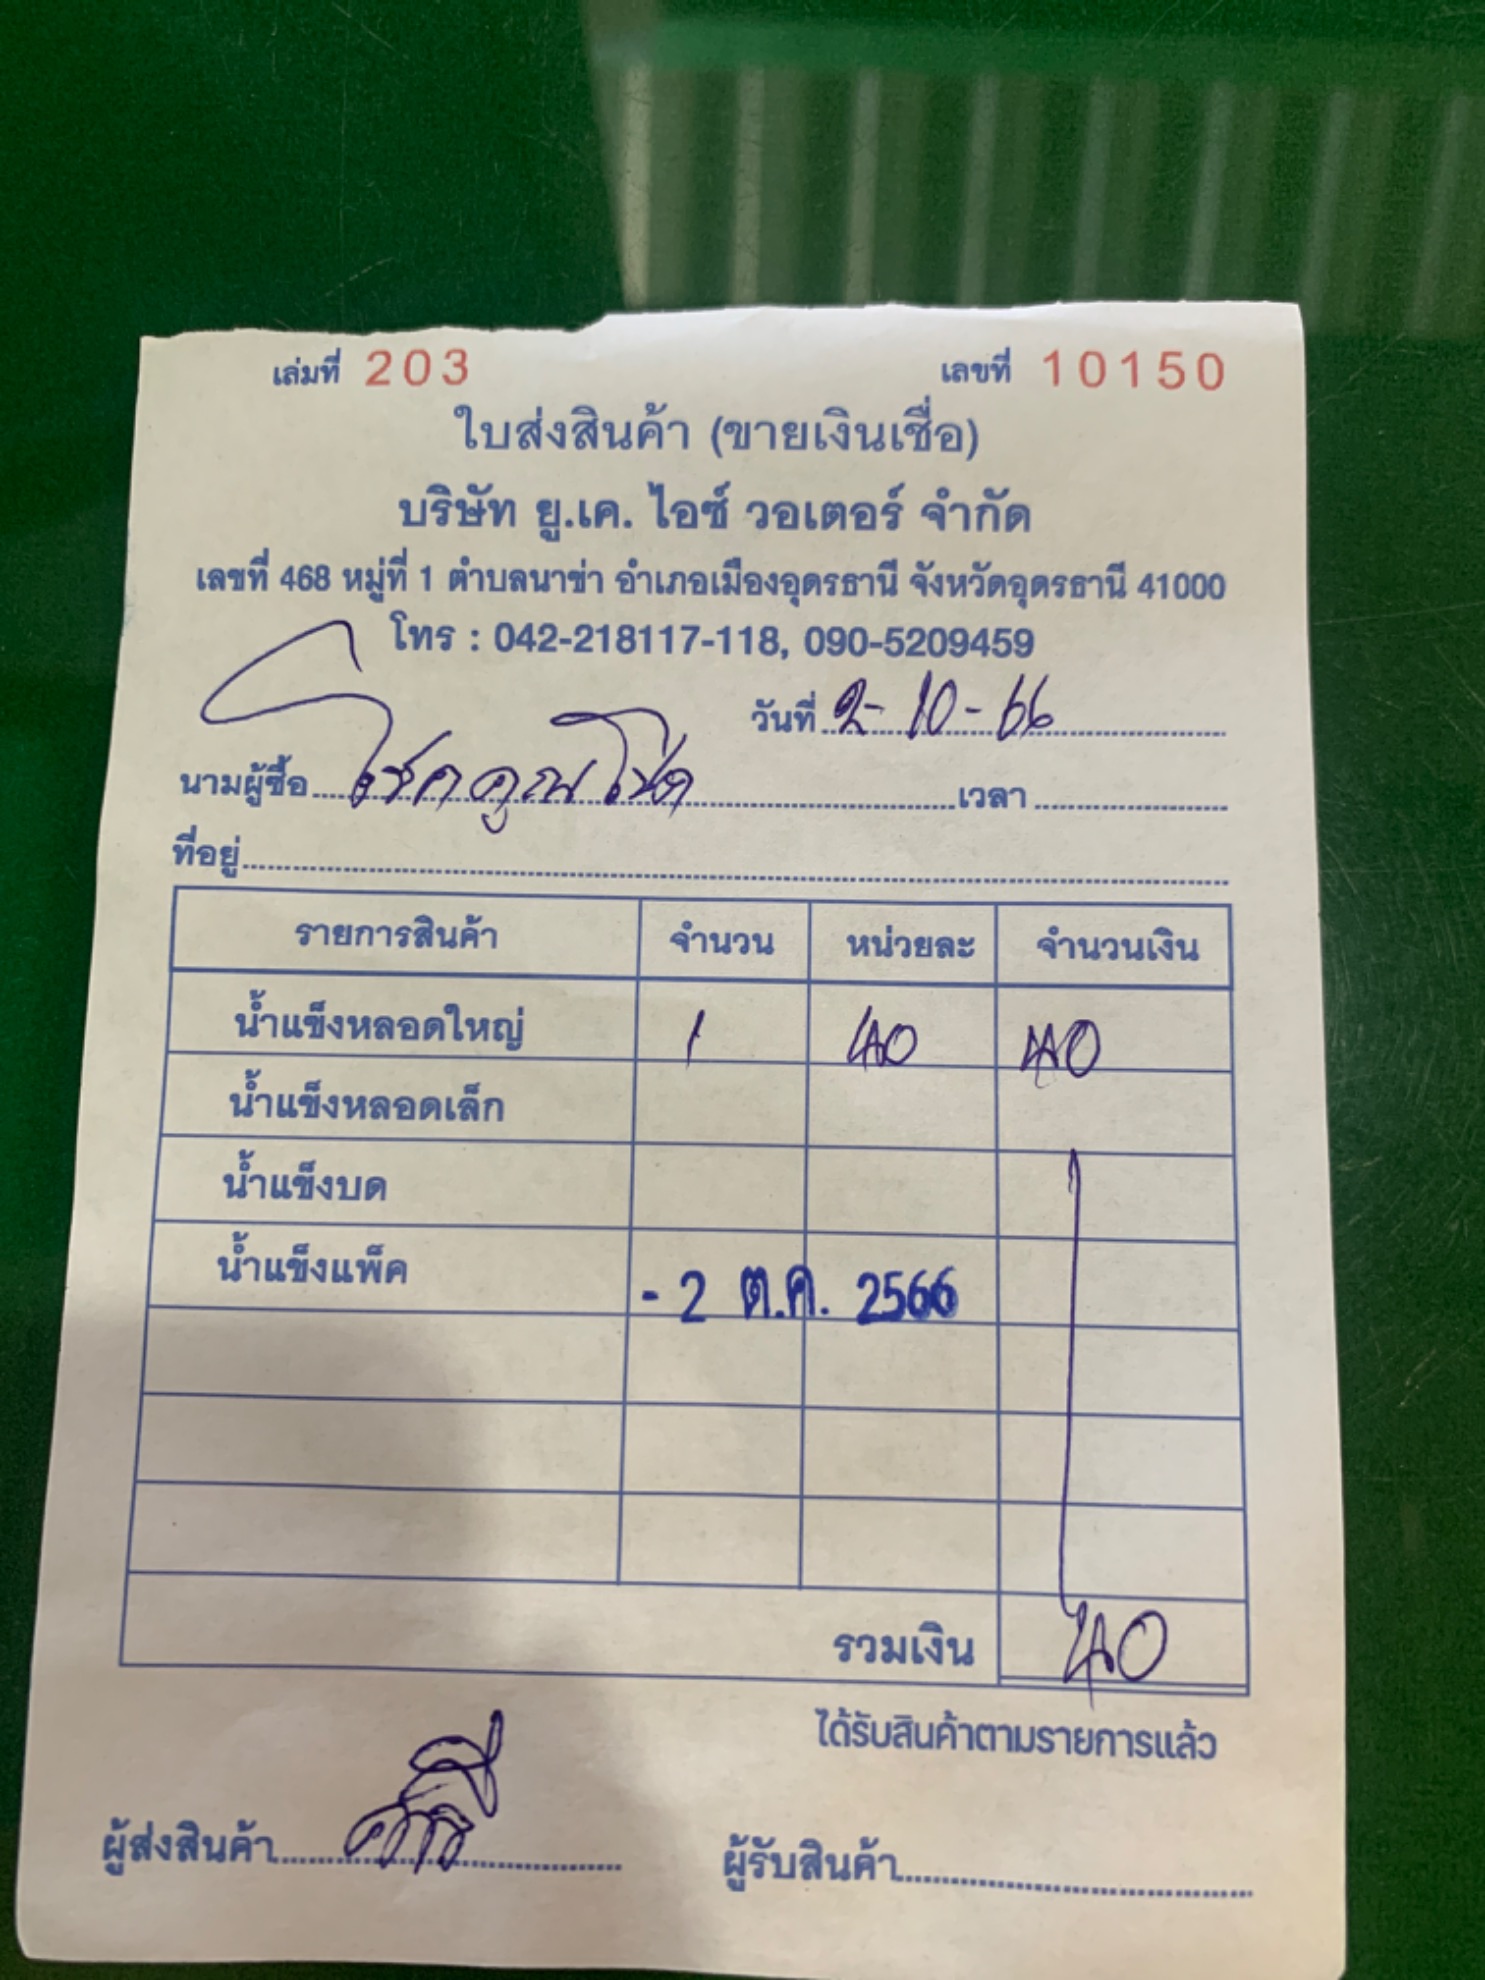 เล่มที่ 203 เลขที่ 10150
ใบส่งสินค้า (ขายเงินเชื่อ)
บริษัท ยู.เค. ไอซ์ วอเตอร์ จำกัด
เลขที่ 468 หมู่ที่ 1 ตำบลนาข่า อำเภอเมืองอุดรธานี จังหวัดอุดรธานี 41000
โทร : 042-218117-118, 090-5209459
วันที่ 2-10-66
นามผู้ซื้อ โชคคูณ เวลา
ที่อยู่
รายการสินค้า จำนวน หน่วยละ จำนวนเงิน
น้ำแข็งหลอดใหญ่ 1 40 40
น้ำแข็งหลอดเล็ก
น้ำแข็งบด
น้ำแข็งแพ็ค
- 2 ต.ค. 2566
รวมเงิน 40
ได้รับสินค้าตามรายการแล้ว
ผู้ส่งสินค้า ผู้รับสินค้า